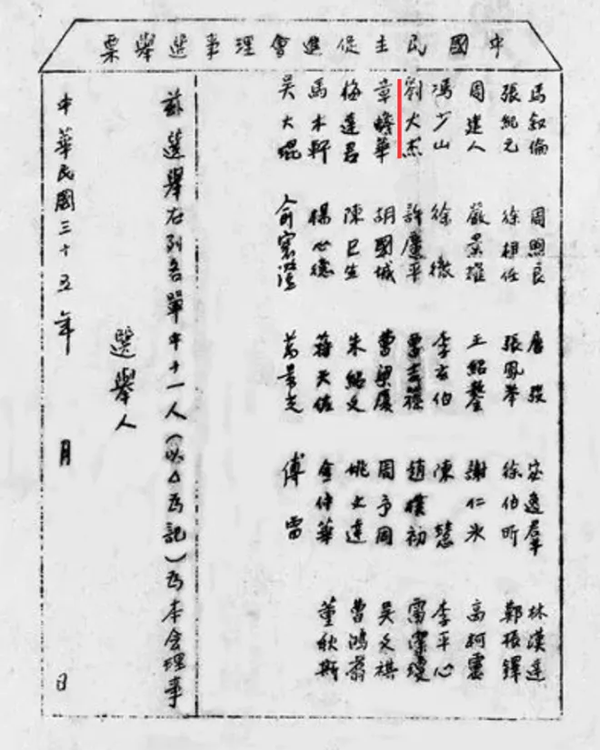 中國民主促進會理事選舉票
馬叙倫 周煦良 唐弢 宓逸羣 林漢達
張紀元 徐相任 張鳳舉 徐伯昕 鄭振鐸
周建人 嚴景耀 王紹鏊 謝仁冰 高柯靈
馮少山 徐徹 李玄伯 陳慧 李平心
劉大杰 許廣平 趙樸初 雷潔瓊
章蟾華 胡國城 曹梁廈 周予同 吳文祺
梅達君 陳巳生 朱紹文 曹鴻翥
馬木軒 楊心德 蔣天佐 金仲華 董秋斯
吳大琨 俞寰澄 萬景光 傅雷
茲選舉右列名單中十一人（以△爲記）爲本會理事
選舉人
中華民國三十五年 月 日